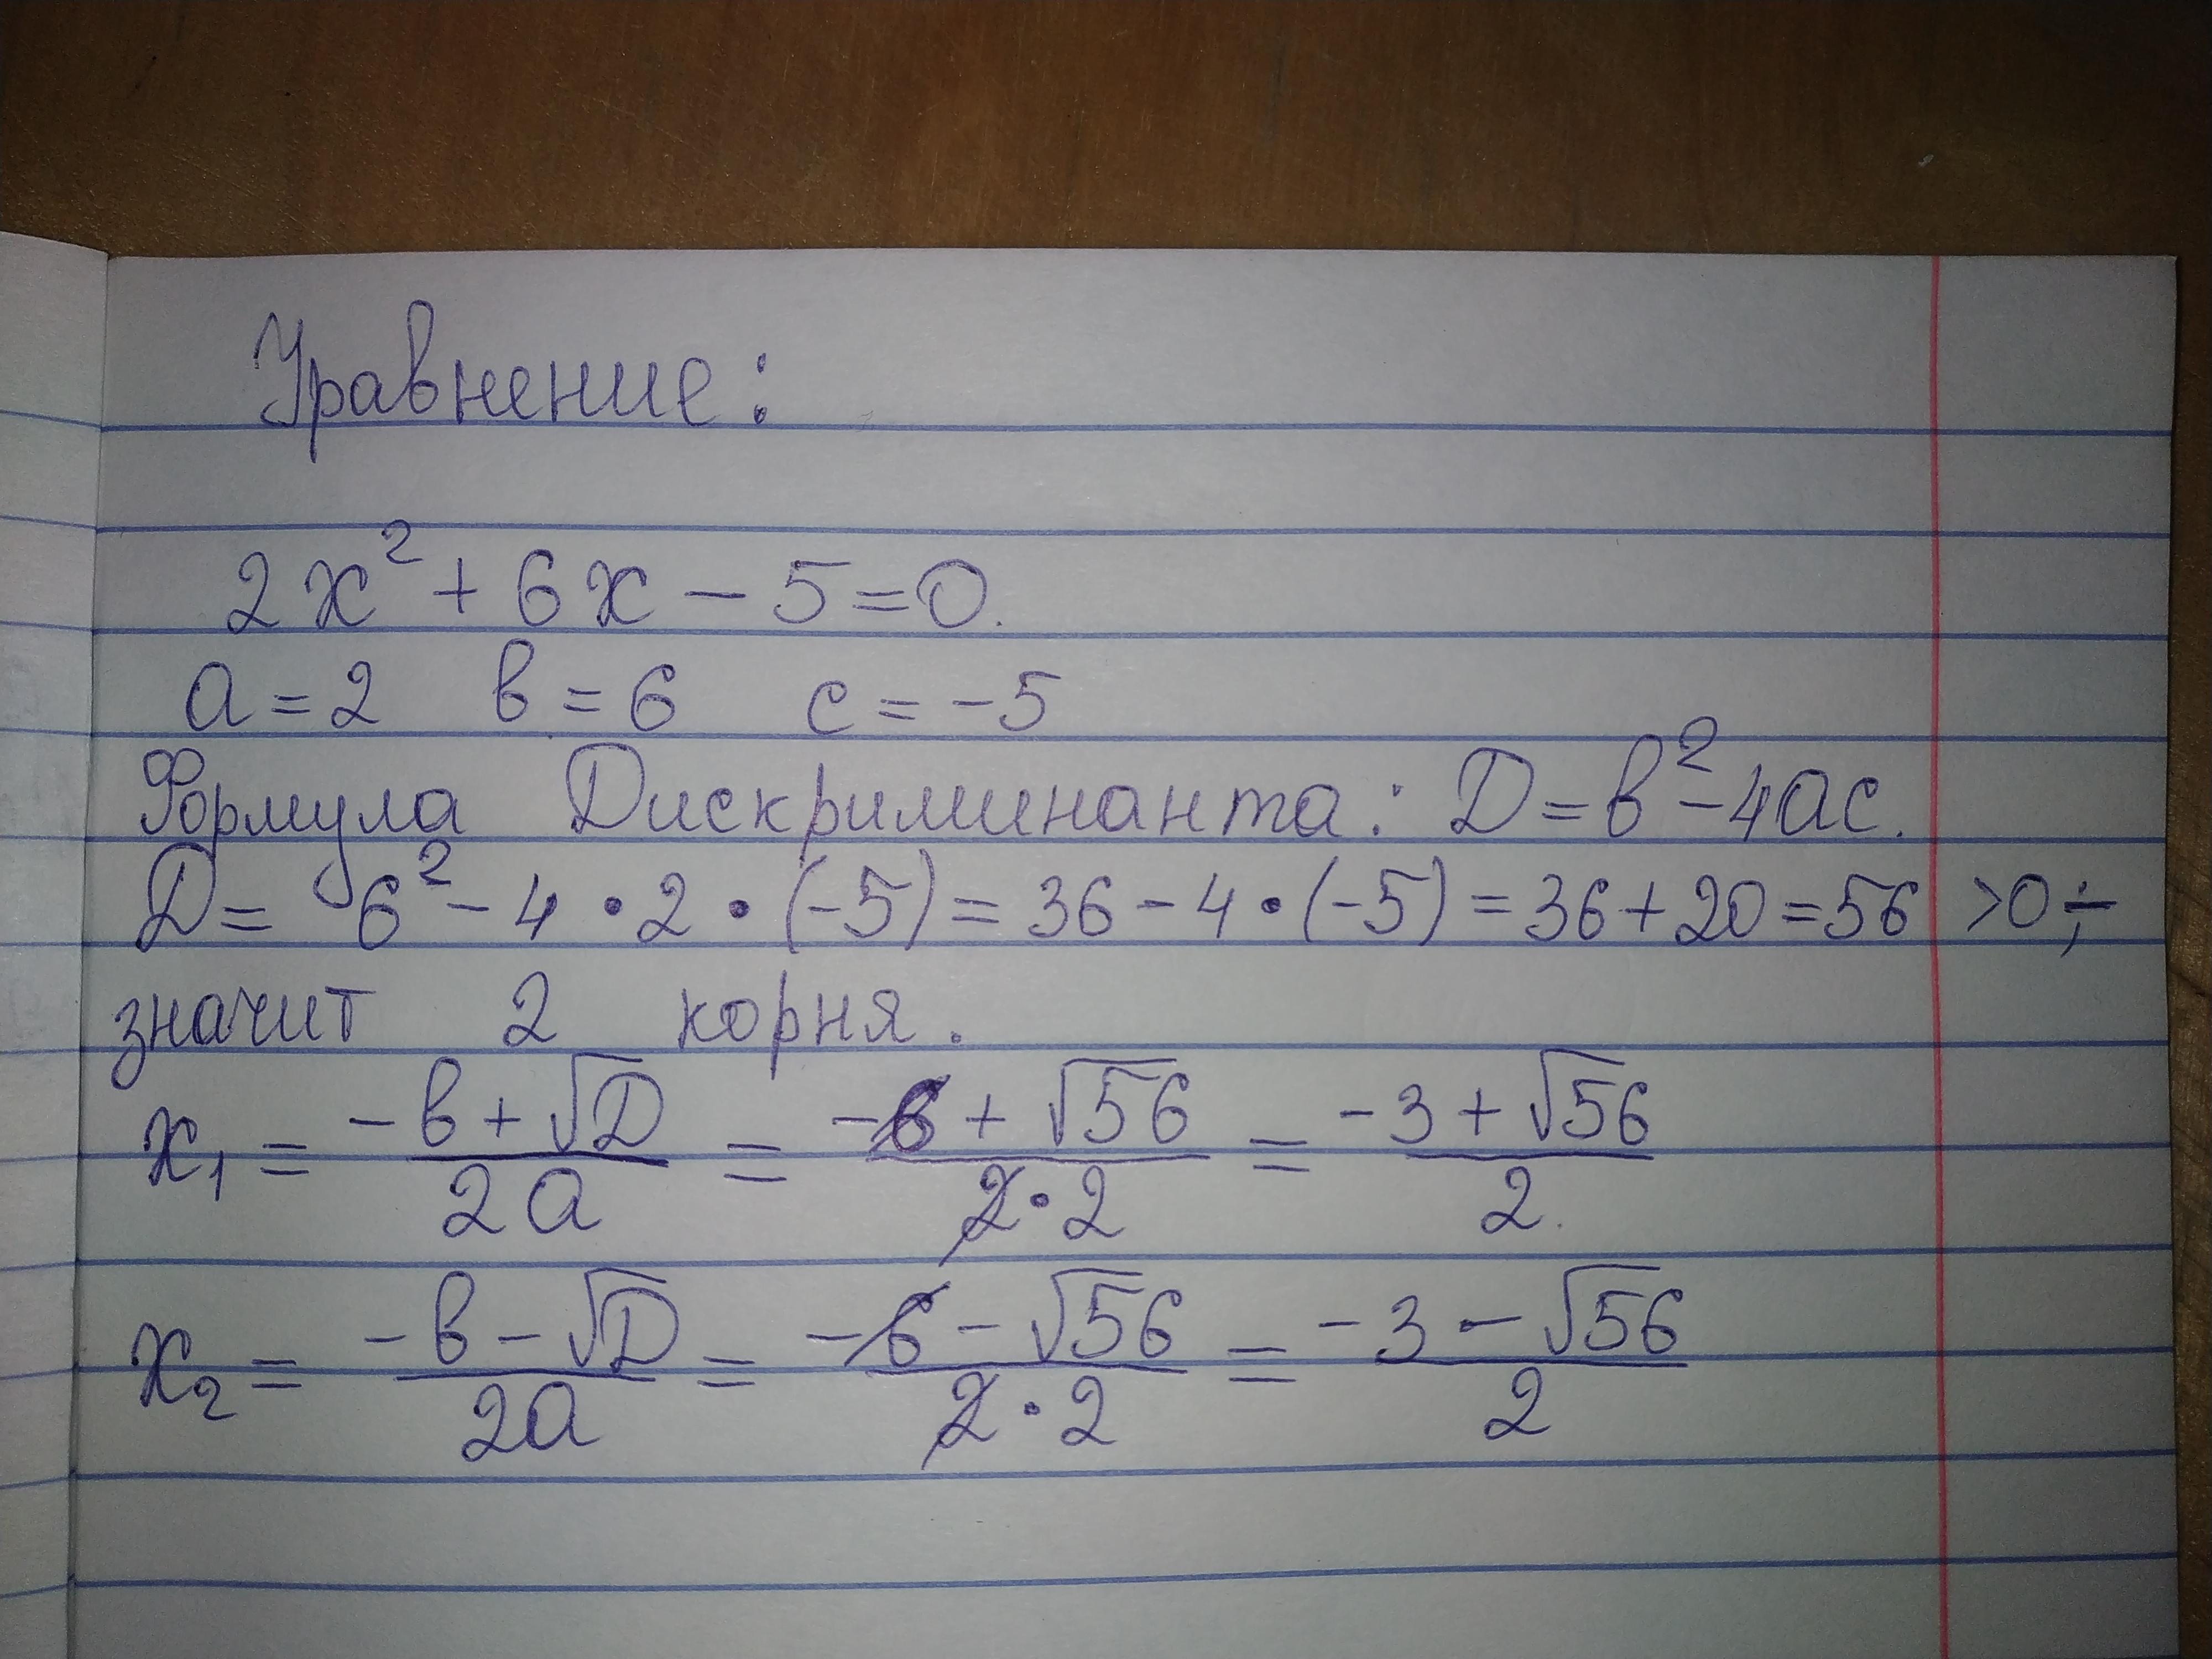 Уравнение:
2x² + 6x - 5 = 0.
a = 2 в = 6 c = -5
Формула Дискриминанта: D = в² - 4ac.
D = 6² - 4 • 2 • (-5) = 36 - 4 • (-5) = 36 + 20 = 56 > 0; -
значит 2 корня.
x₁ = (-в + √D)/(2a) = (-6 + √56)/(2 • 2) = (-3 + √56)/2.
x₂ = (-в - √D)/(2a) = (-6 - √56)/(2 • 2) = (-3 - √56)/2